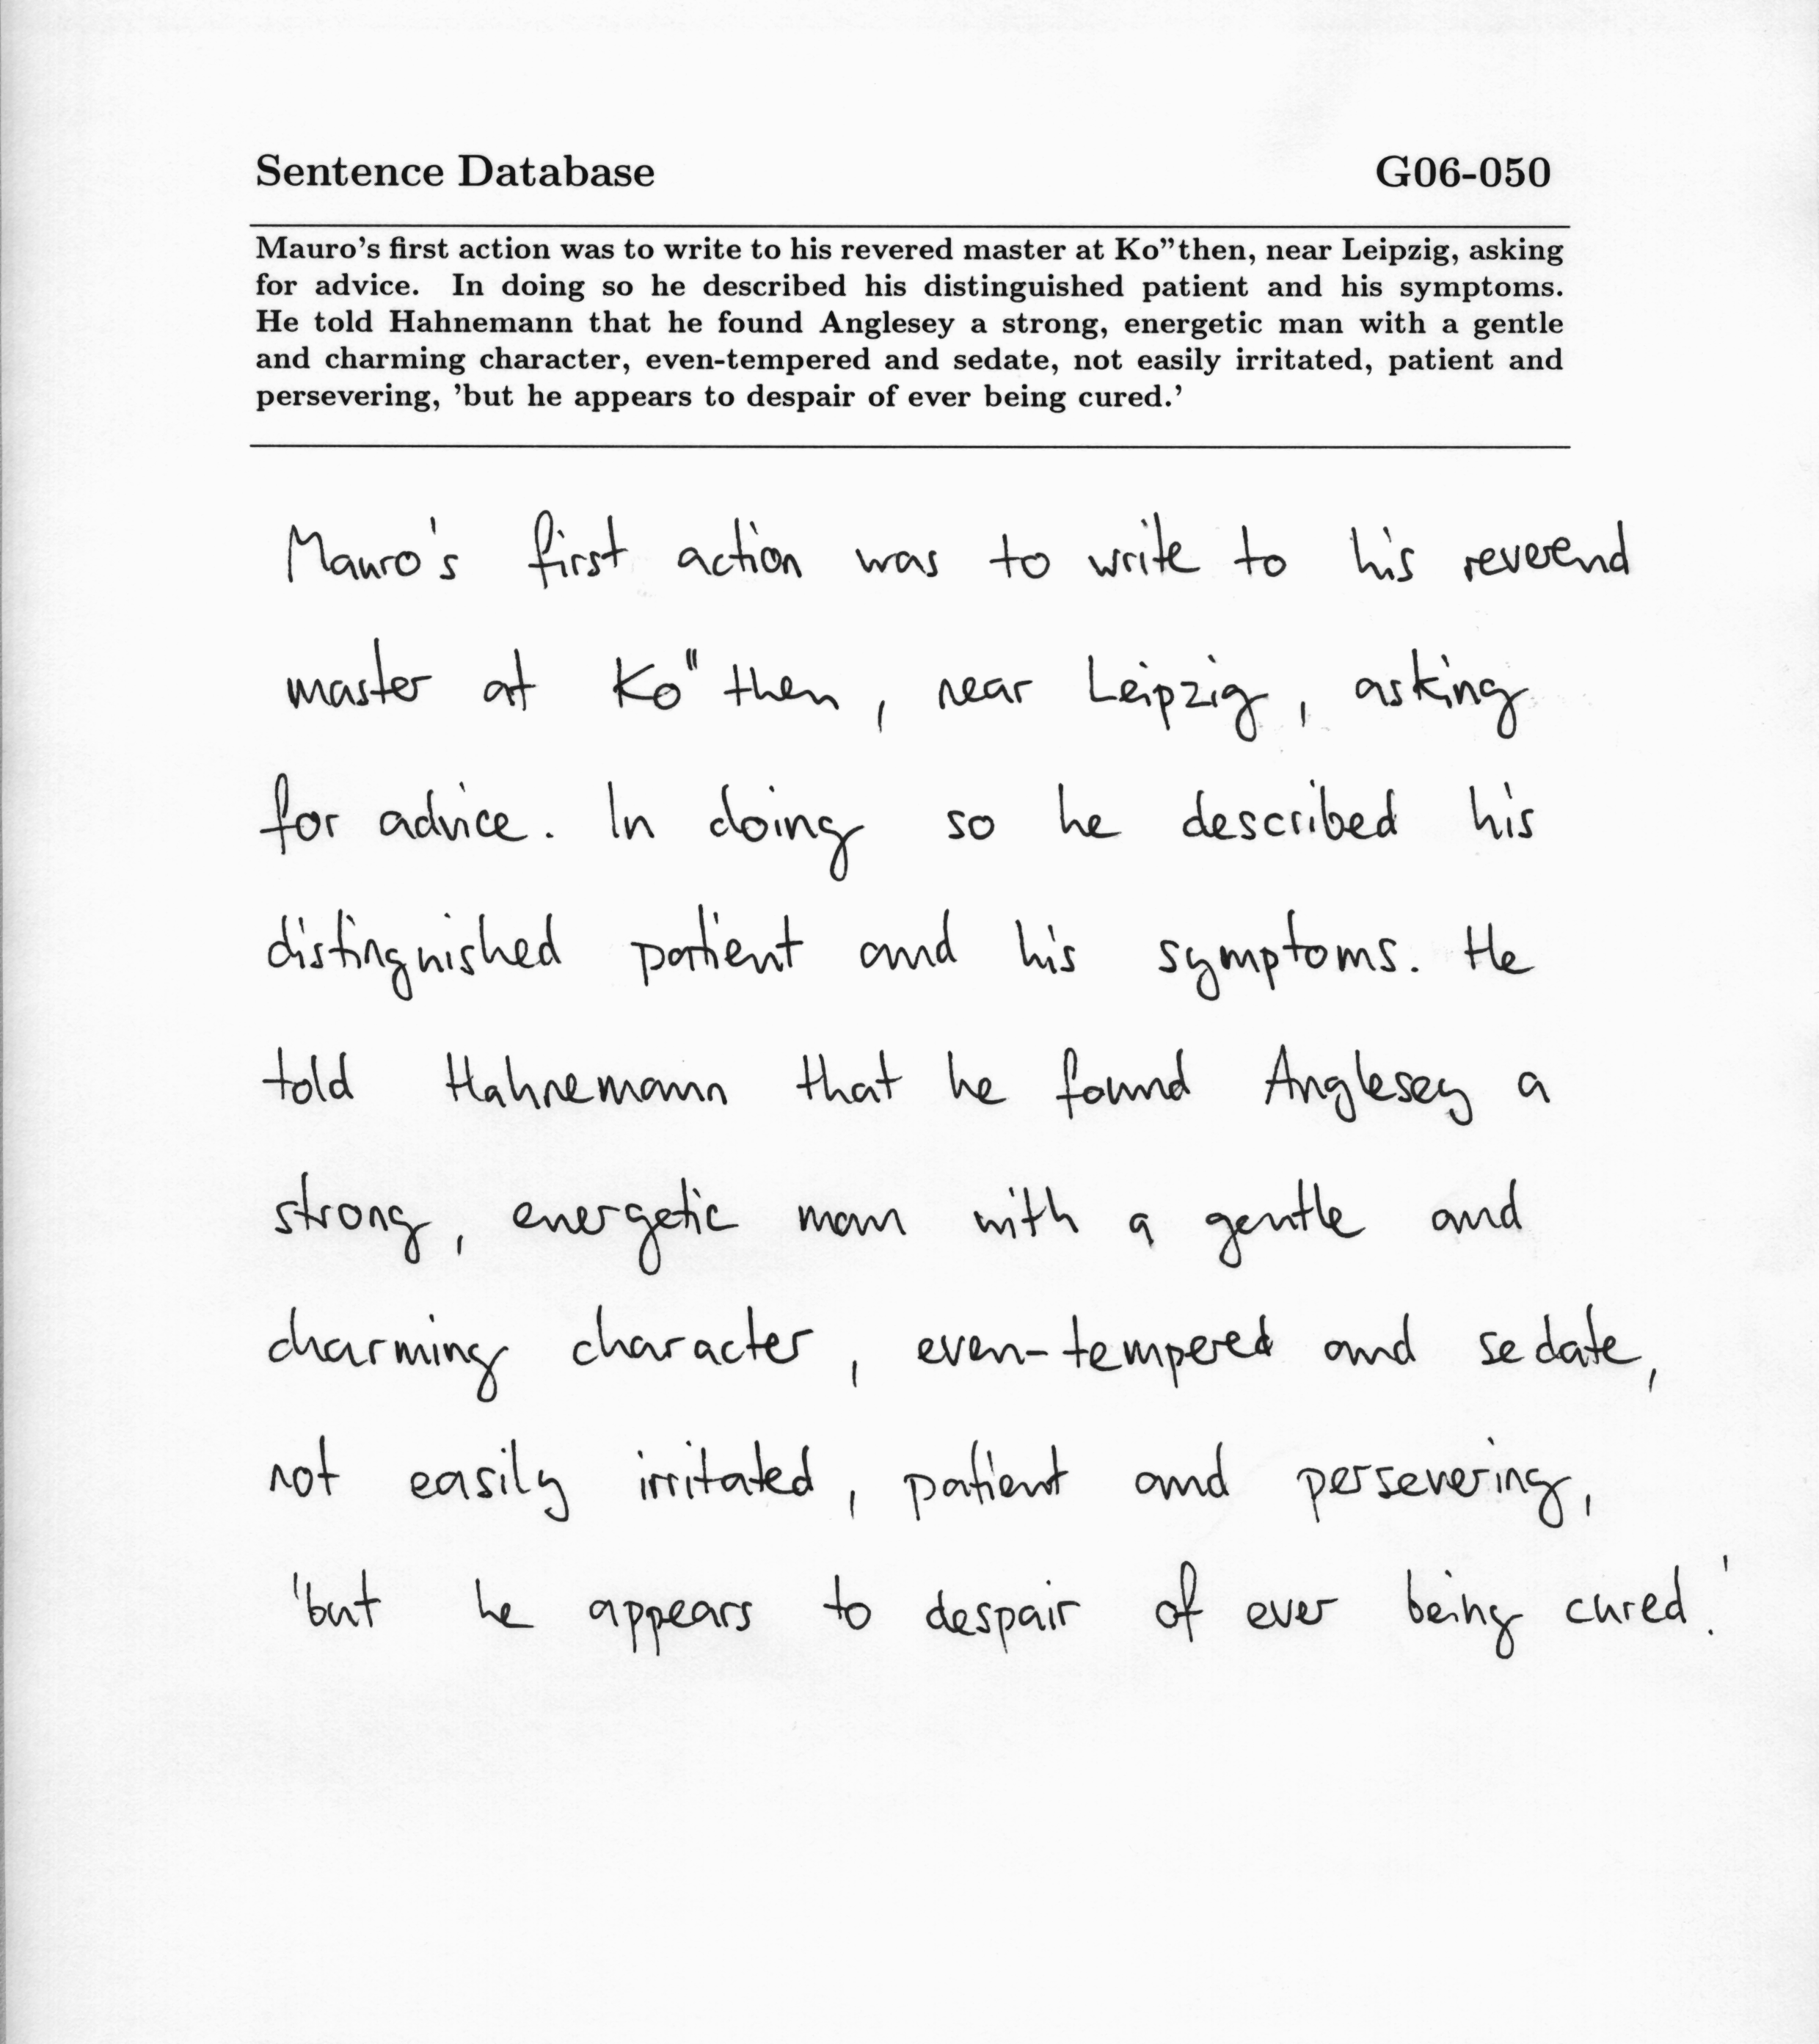 Sentence Database G06-050
Mauro's first action was to write to his revered master at Ko"then, near Leipzig, asking
for advice. In doing so he described his distinguished patient and his symptoms.
He told Hahnemann that he found Anglesey a strong, energetic man with a gentle
and charming character, even-tempered and sedate, not easily irritated, patient and
persevering, 'but he appears to despair of ever being cured.'
Mauro's first action was to write to his reverend
master at Ko" then, near Leipzig, asking
for advice. In doing so he described his
distinguished patient and his symptoms. He
told Hahnemann that he found Anglesey a
strong, energetic man with a gentle and
charming character, even-tempered and sedate,
not easily irritated, patient and persevering,
'but he appears to despair of ever being cured.'